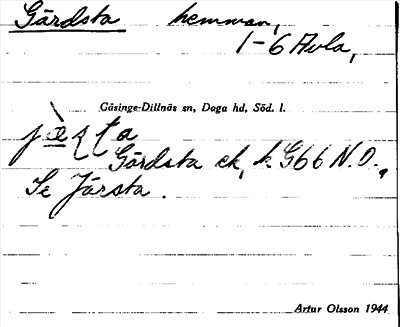 Gärdsta hemman,
1-6 Avla,
Gåsinge-Dillnäs sn, Daga hd, Söd. l.
Gärdsta ek. k. G66 N.O.,
Se Järsta.
Artur Olsson 1944